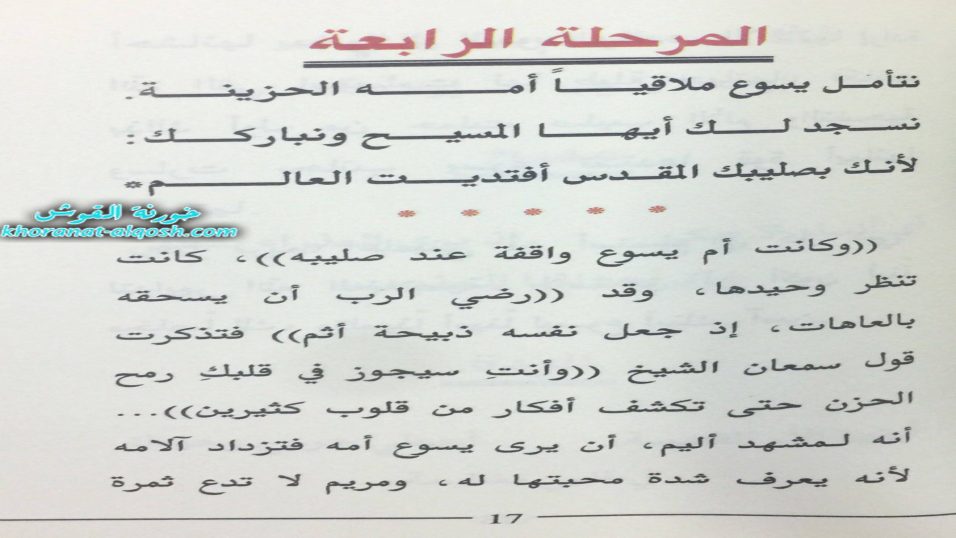 المرحلة الرابعة
نتأمل يسوع ملاقياً أمه الحزينة.
نسجد لك أيها المسيح ونباركك:
لأنك بصليبك المقدس أفتديت العالم*
* * * * *
خورنة القوش
khoranat-alqosh.com
((وكانت أم يسوع واقفة عند صليبه))، كانت
تنظر وحيدها، وقد ((رضي الرب أن يسحقه
بالعاهات، إذ جعل نفسه ذبيحة أثم)) فتذكرت
قول سمعان الشيخ ((وأنتِ سيجوز في قلبكِ رمح
الحزن حتى تكشف أفكار من قلوب كثيرين))...
أنه لمشهد أليم، أن يرى يسوع أمه فتزداد آلامه
لأنه يعرف شدة محبتها له، ومريم لا تدع ثمرة
17